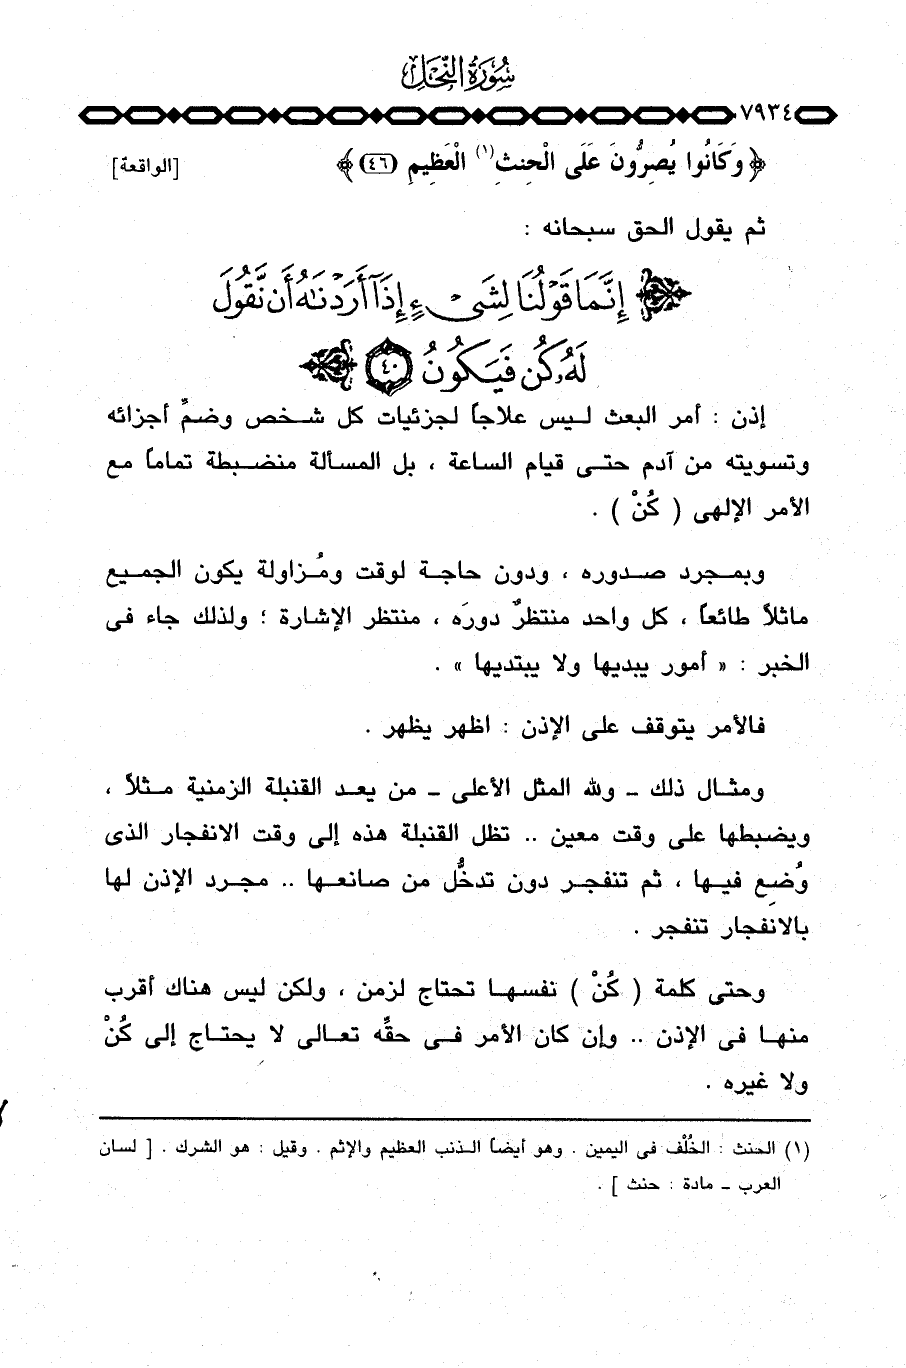 سُورَةُ النَّحْلِ
٧٩٣٤
﴿ وَكَانُوا يُصِرُّونَ عَلَى الْحِنثِ(١) الْعَظِيمِ (٤٦) ﴾ [الواقعة]
ثم يقول الحق سبحانه :
إِنَّمَا قَوْلُنَا لِشَىْءٍ إِذَآ أَرَدْنَٰهُ أَن نَّقُولَ
لَهُۥ كُن فَيَكُونُ ٤٠
إذن : أمر البعث ليس علاجاً لجزئيات كل شخص وضمِّ أجزائه
وتسويته من آدم حتى قيام الساعة ، بل المسألة منضبطة تماماً مع
الأمر الإلهى ( كُنْ ) .
وبمجرد صدوره ، ودون حاجة لوقت ومُزاولة يكون الجميع
ماثلاً طائعاً ، كل واحد منتظرٌ دورَه ، منتظر الإشارة ؛ ولذلك جاء فى
الخبر : « أمور يبديها ولا يبتديها » .
فالأمر يتوقف على الإذن : اظهر يظهر .
ومثال ذلك ـ ولله المثل الأعلى ـ من يعد القنبلة الزمنية مثلاً ،
ويضبطها على وقت معين .. تظل القنبلة هذه إلى وقت الانفجار الذى
وُضِع فيها ، ثم تنفجر دون تدخُّل من صانعها .. مجرد الإذن لها
بالانفجار تنفجر .
وحتى كلمة ( كُنْ ) نفسها تحتاج لزمن ، ولكن ليس هناك أقرب
منها فى الإذن .. وإن كان الأمر فى حقِّه تعالى لا يحتاج إلى كُنْ
ولا غيره .
(١) الحنث : الخُلْف فى اليمين . وهو أيضاً الذنب العظيم والإثم . وقيل : هو الشرك . [ لسان
العرب ـ مادة : حنث ] .